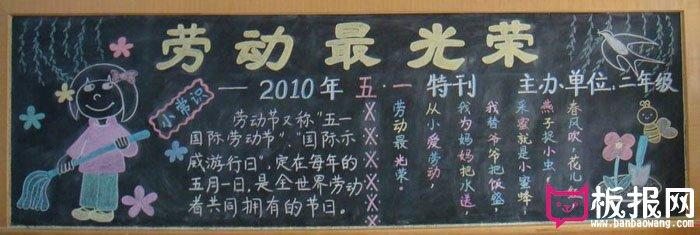 劳动最光荣
— 2010年 五·一 特刊 主办单位:二年级
小常识
劳动节又称"五一
国际劳动节"、"国际示
威游行日",定在每年的
五月一日,是全世界劳动
者共同拥有的节日。
春风吹,花儿
燕子捉小虫,
采蜜就是小蜜蜂,
我替爷爷把饭盛,
我为妈妈把水送,
从小爱劳动,
劳动最光荣。
板报网
www.banbaowang.com